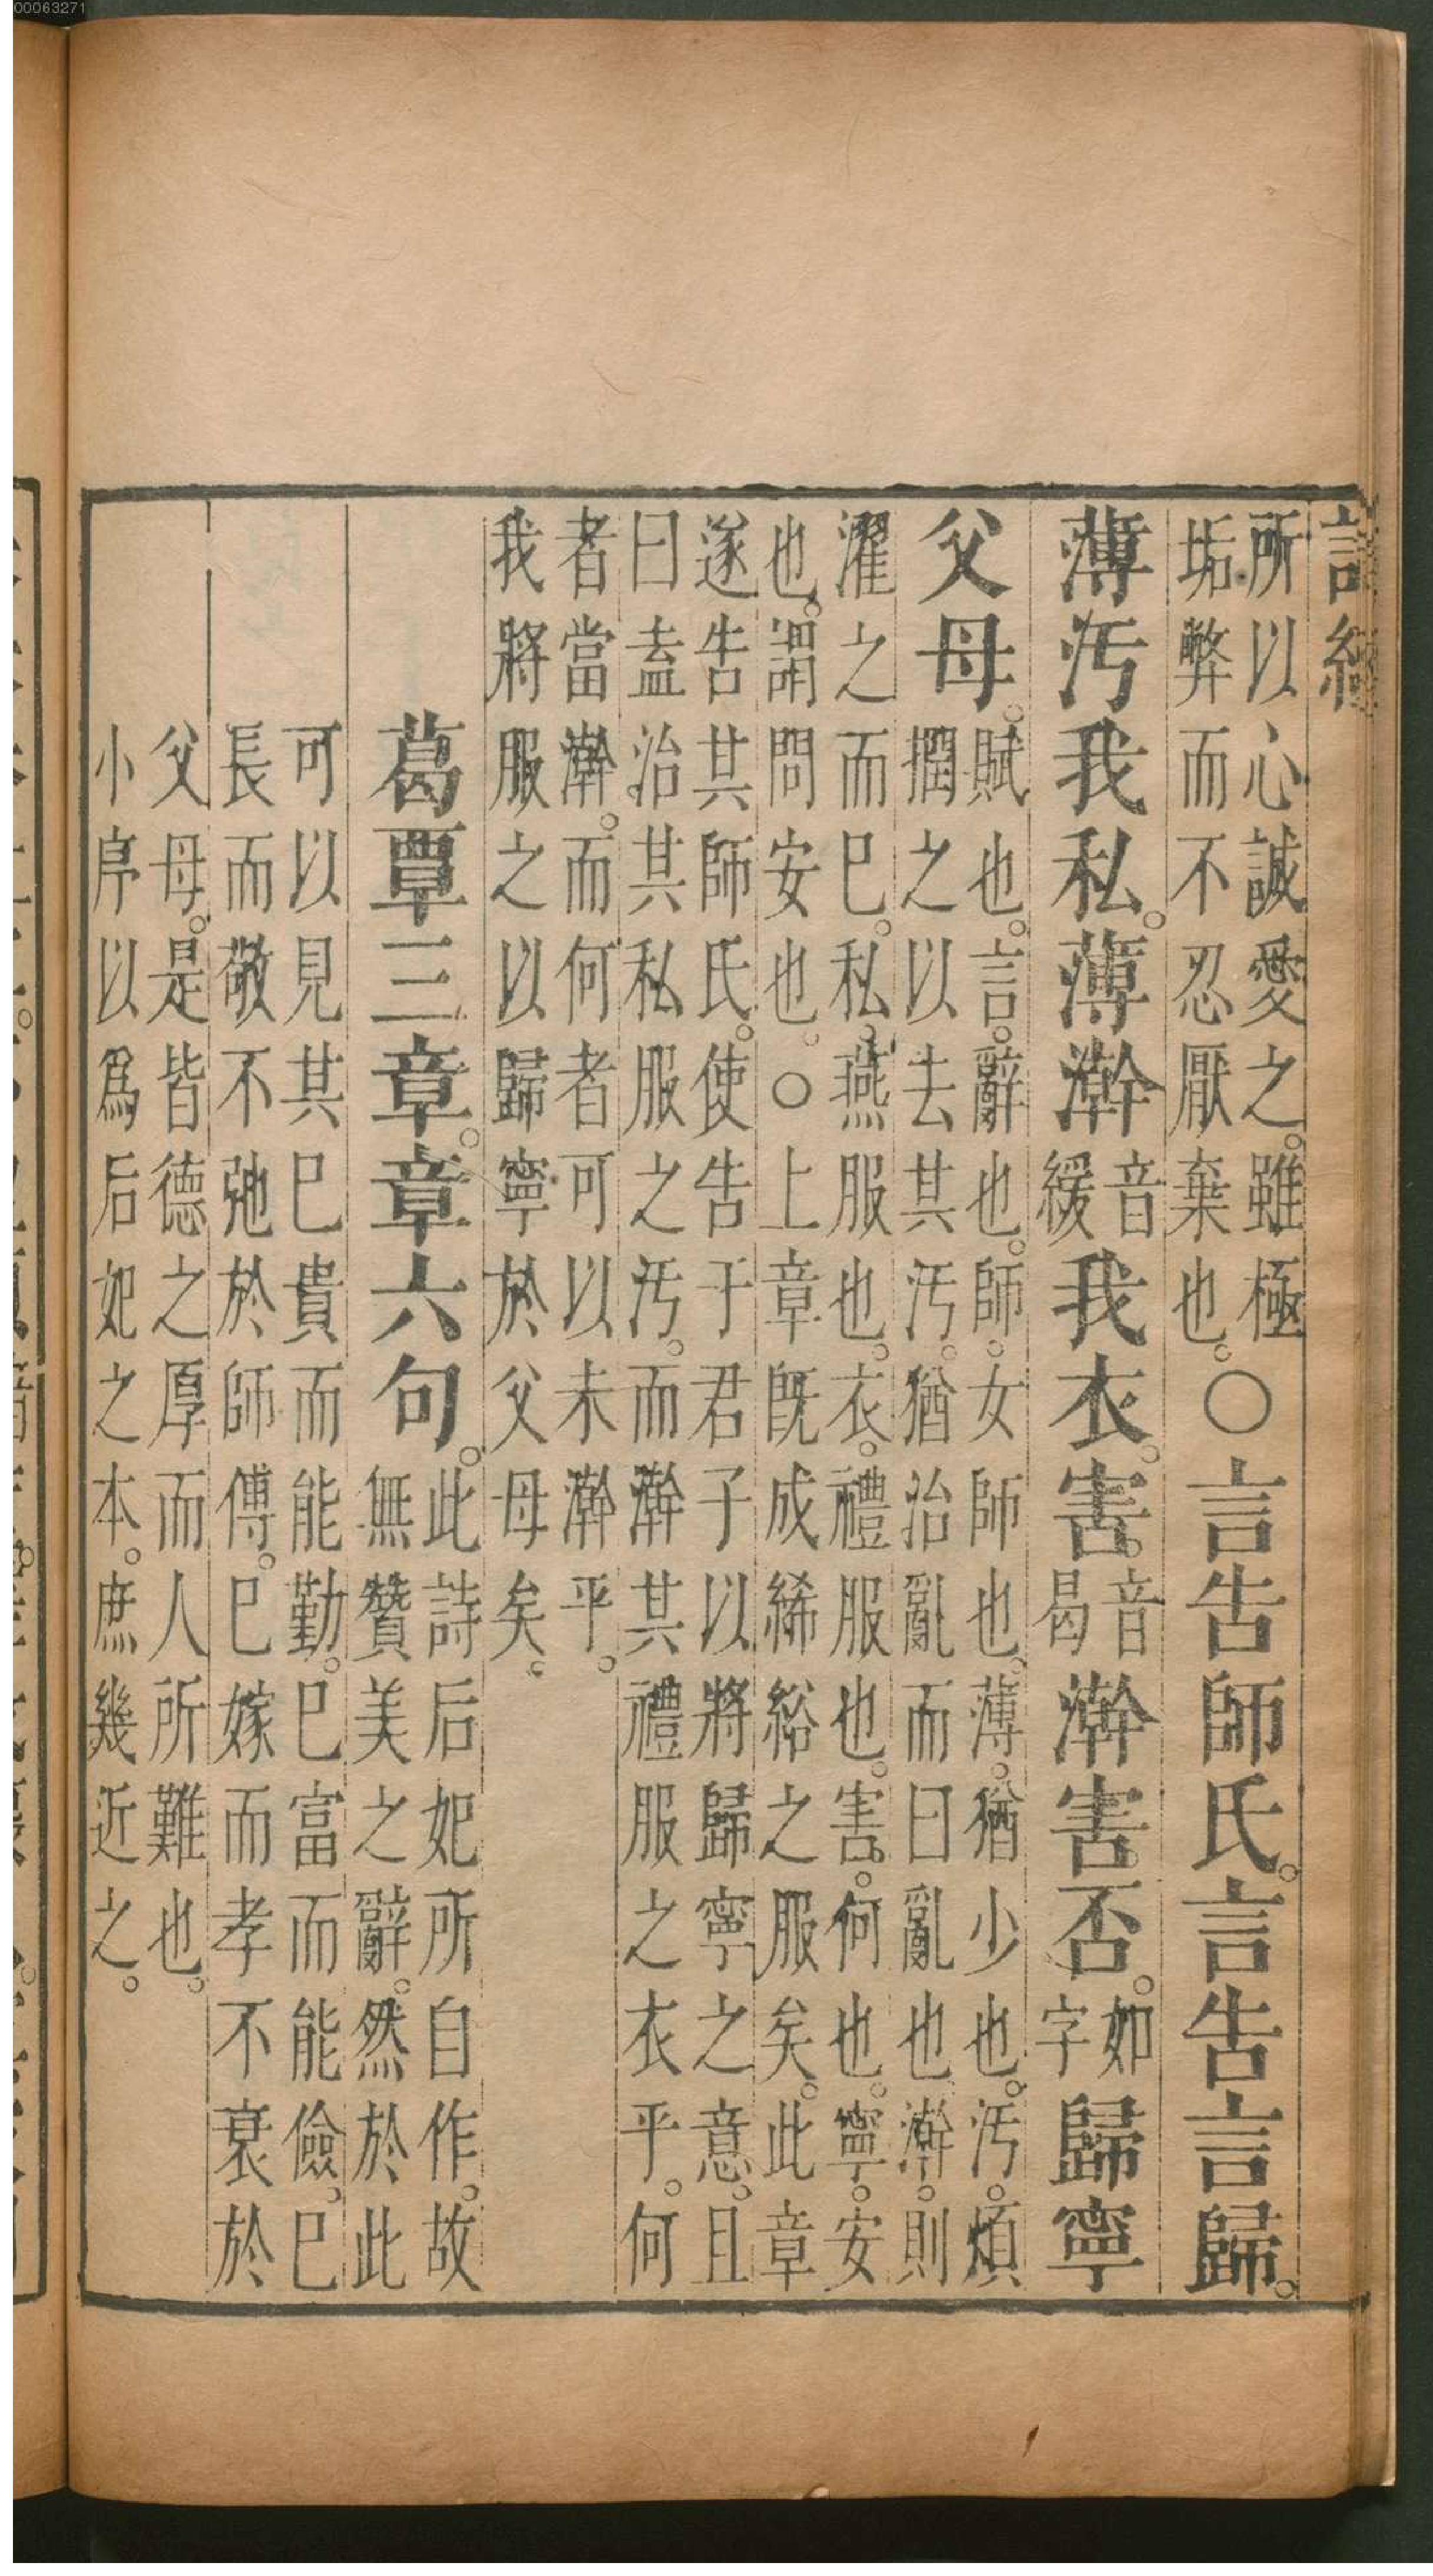 00063271
詩經
所以心誠愛之。雖極
垢弊而不忍厭棄也。
○言告師氏。言告言歸。
薄汚我私。薄澣
音
緩
我衣。害。
音
曷
澣害否。
如
字
歸寧
父母。
賦也。言。辭也。師。女師也。薄。猶少也。汚。煩
撋之以去其汚。猶治亂而曰亂也。澣。則
濯之而已。私。燕服也。衣。禮服也。害。何也。寧。安
也。謂問安也。○上章旣成絺綌之服矣。此章
遂告其師氏。使告于君子以將歸寧之意。且
曰盍治其私服之汚。而澣其禮服之衣乎。何
者當澣。而何者可以未澣乎。
我將服之以歸寧於父母矣。
葛覃三章。章六句。
此詩后妃所自作。故
無贊美之辭。然於此
可以見其已貴而能勤。已富而能儉。已
長而敬不弛於師傅。已嫁而孝不衰於
父母。是皆德之厚而人所難也。
小序以爲后妃之本。庶幾近之。